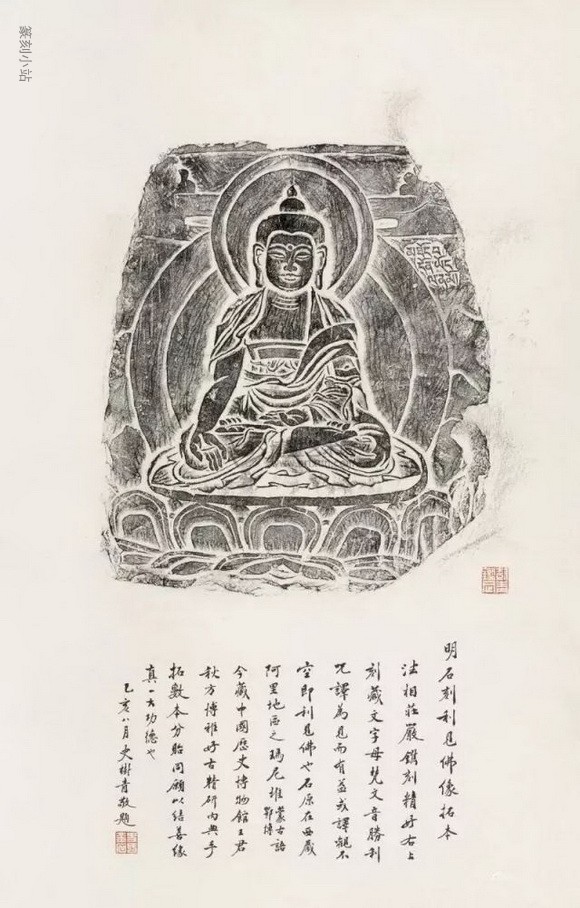 篆刻小站
明石刻利見佛像拓本
法相莊嚴鐫刻精好右上
刻藏文字母梵文音勝利
咒譯為見而有益或譯觀不
空即利見佛也石原在西藏
阿里地區之瑪尼堆蒙古語鄂博
今藏中國歷史博物館王君
秋方博雅好古精研內典手
拓數本分貽同願以結善緣
真一大功德也
乙亥八月史樹青敬題